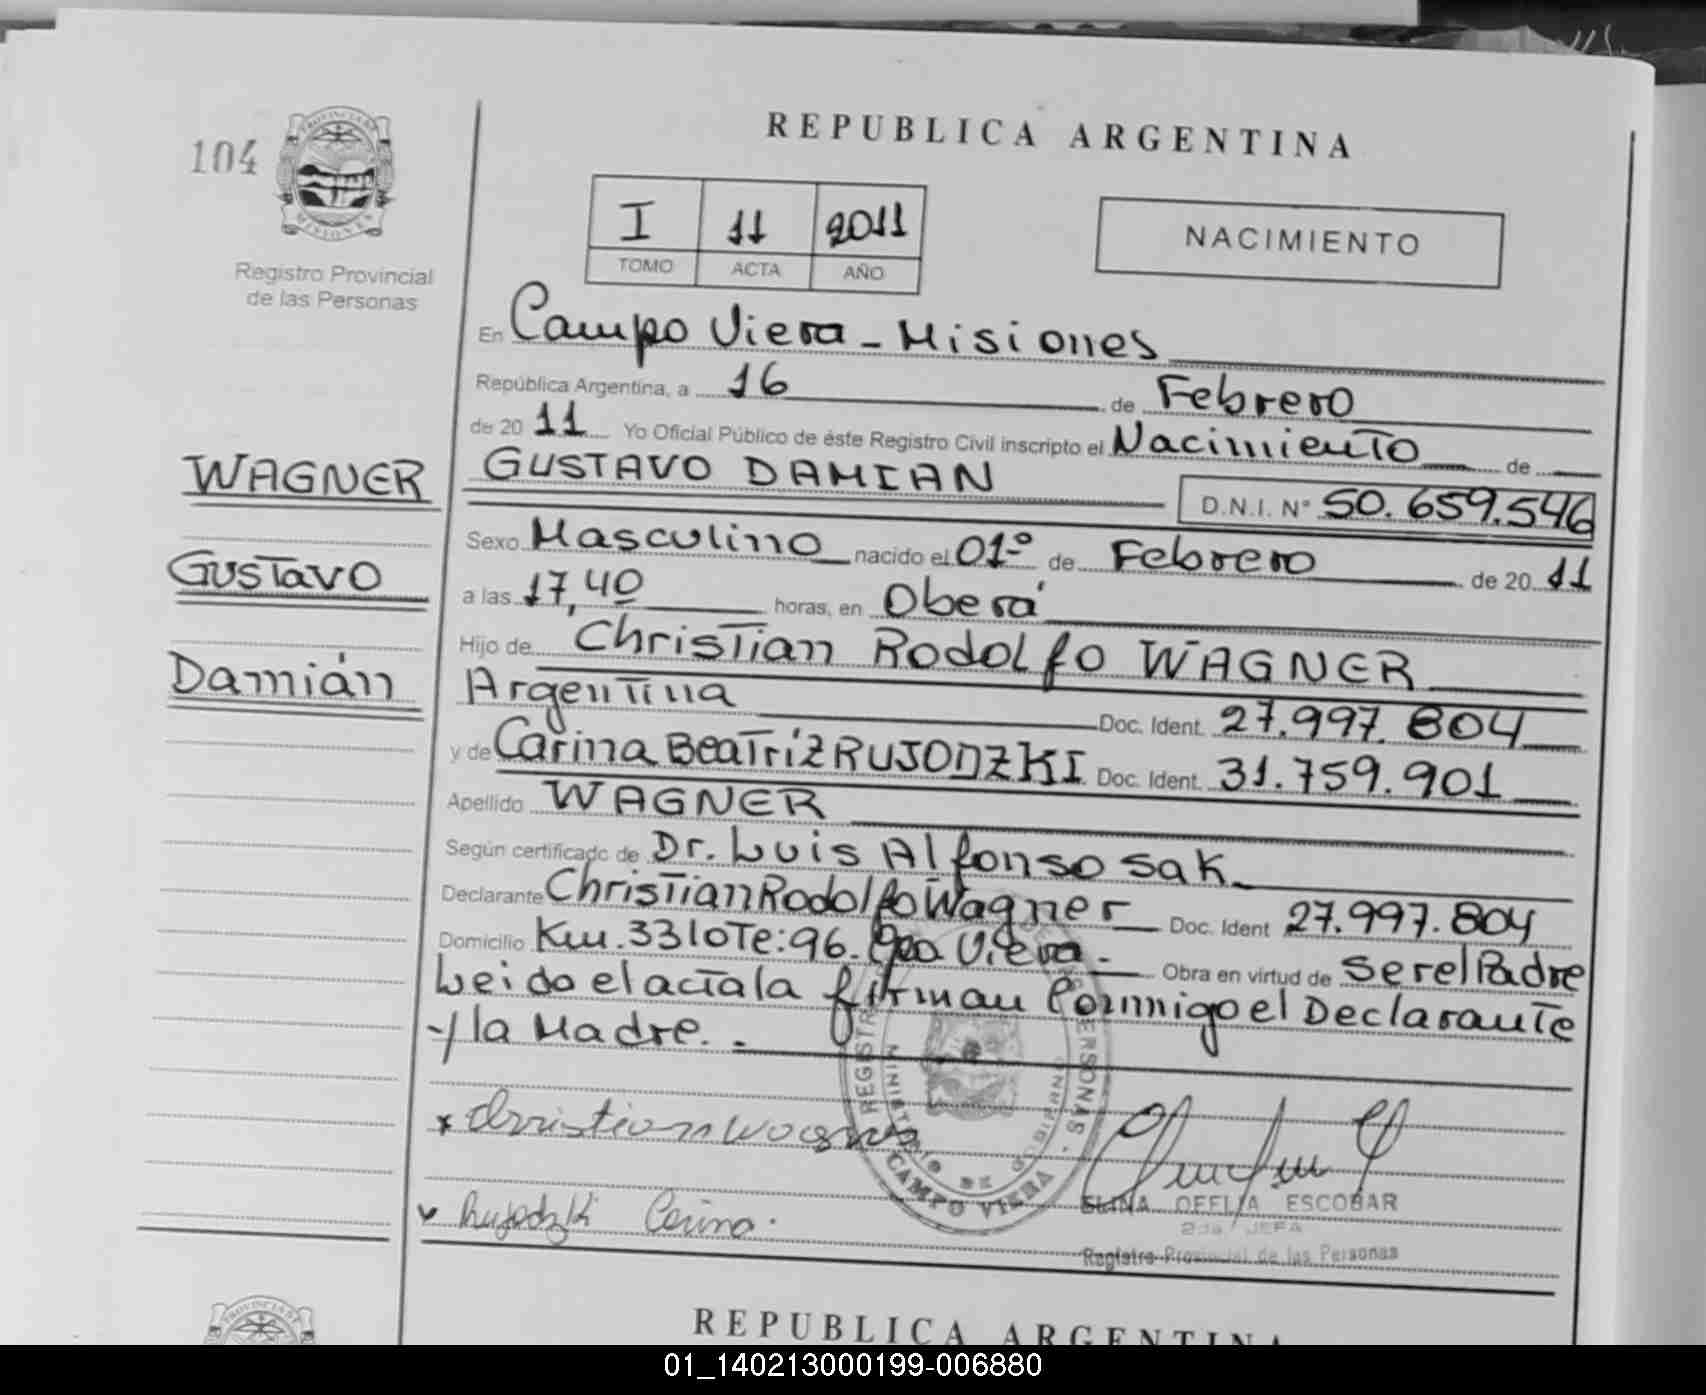 REPUBLICA ARGENTINA
104
I 11 2011
TOMO ACTA AÑO
NACIMIENTO
PROVINCIA DE
MISIONES
Registro Provincial
de las Personas
En Campo Viera - Misiones
República Argentina, a 16 de Febrero
de 20 11 Yo Oficial Público de éste Registro Civil inscripto el Nacimiento de
WAGNER
GUSTAVO DAMIAN
D.N.I. N° 50.659.546
Sexo Masculino nacido el 01º de Febrero de 20 11
Gustavo
a las 17,40 horas, en Oberá
Hijo de Christian Rodolfo WAGNER
Damián
Argentina Doc. Ident. 27.997.804
y de Carina Beatriz RUJODZKI Doc. Ident. 31.759.901
Apellido WAGNER
Según certificado de Dr. Luis Alfonso Sak
Declarante Christian Rodolfo Wagner Doc. Ident 27.997.804
Domicilio Km. 33 lote: 96. Cpo Viera. Obra en virtud de ser el Padre
Leido el acta la firman Conmigo el Declarante
y la Madre.
Christian Wagner
Rujodzki Carina.
CAMPO VIERA
ELINA OFELIA ESCOBAR
2da. JEFA
Registro Provincial de las Personas
REPUBLICA ARGENTINA
01_140213000199-006880